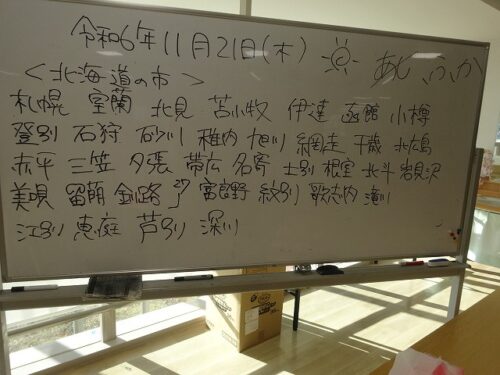 令和6年11月21日(木)
<北海道の市>
札幌 室蘭 北見 苫小牧 伊達 函館 小樽
登別 石狩 砂川 稚内 旭川 網走 千歳 北広島
赤平 三笠 夕張 帯広 名寄 士別 根室 北斗 岩見沢
美唄 留萌 釧路 27 富良野 紋別 歌志内 滝川
江別 恵庭 芦別 深川